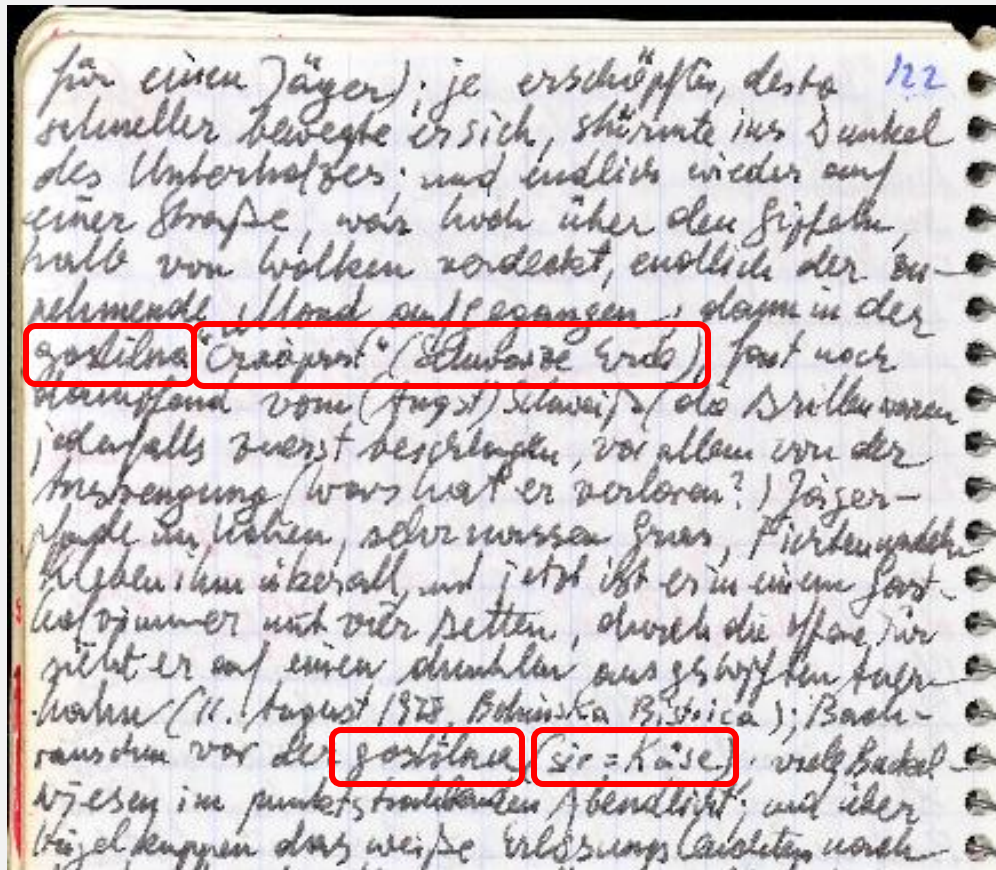 für einen Jäger); je erschöpfter, desto 122
schneller bewegte er sich, stürmte ins Dunkel
des Unterholzes; und endlich wieder auf
einer Straße, war hoch über den Gipfeln,
halb von Wolken verdeckt, endlich der zu-
nehmende Mond aufgegangen; dann in der
gostilna "Črna prst" (Schwarze Erde), fast noch
dampfend vom (Angst) Schweiß (die Brillen waren
jedenfalls zuerst beschlagen, vor allem von der
Anstrengung (was hat er verloren?) Jäger-
im hohen, sehr nassen Gras, Fichtennadeln
kleben ihm überall, und jetzt ist er in einem Gast-
hofzimmer mit vier Betten, durch die offene Tür
sieht er auf einen dunklen ausgestopften Auer-
hahn (11. August 1978, Bohinjska Bistrica); Bach-
rauschen vor der gostilna (sir = Käse); viele Buckel-
wiesen im Abendlicht; und über
Hügelkuppen das weiße nach